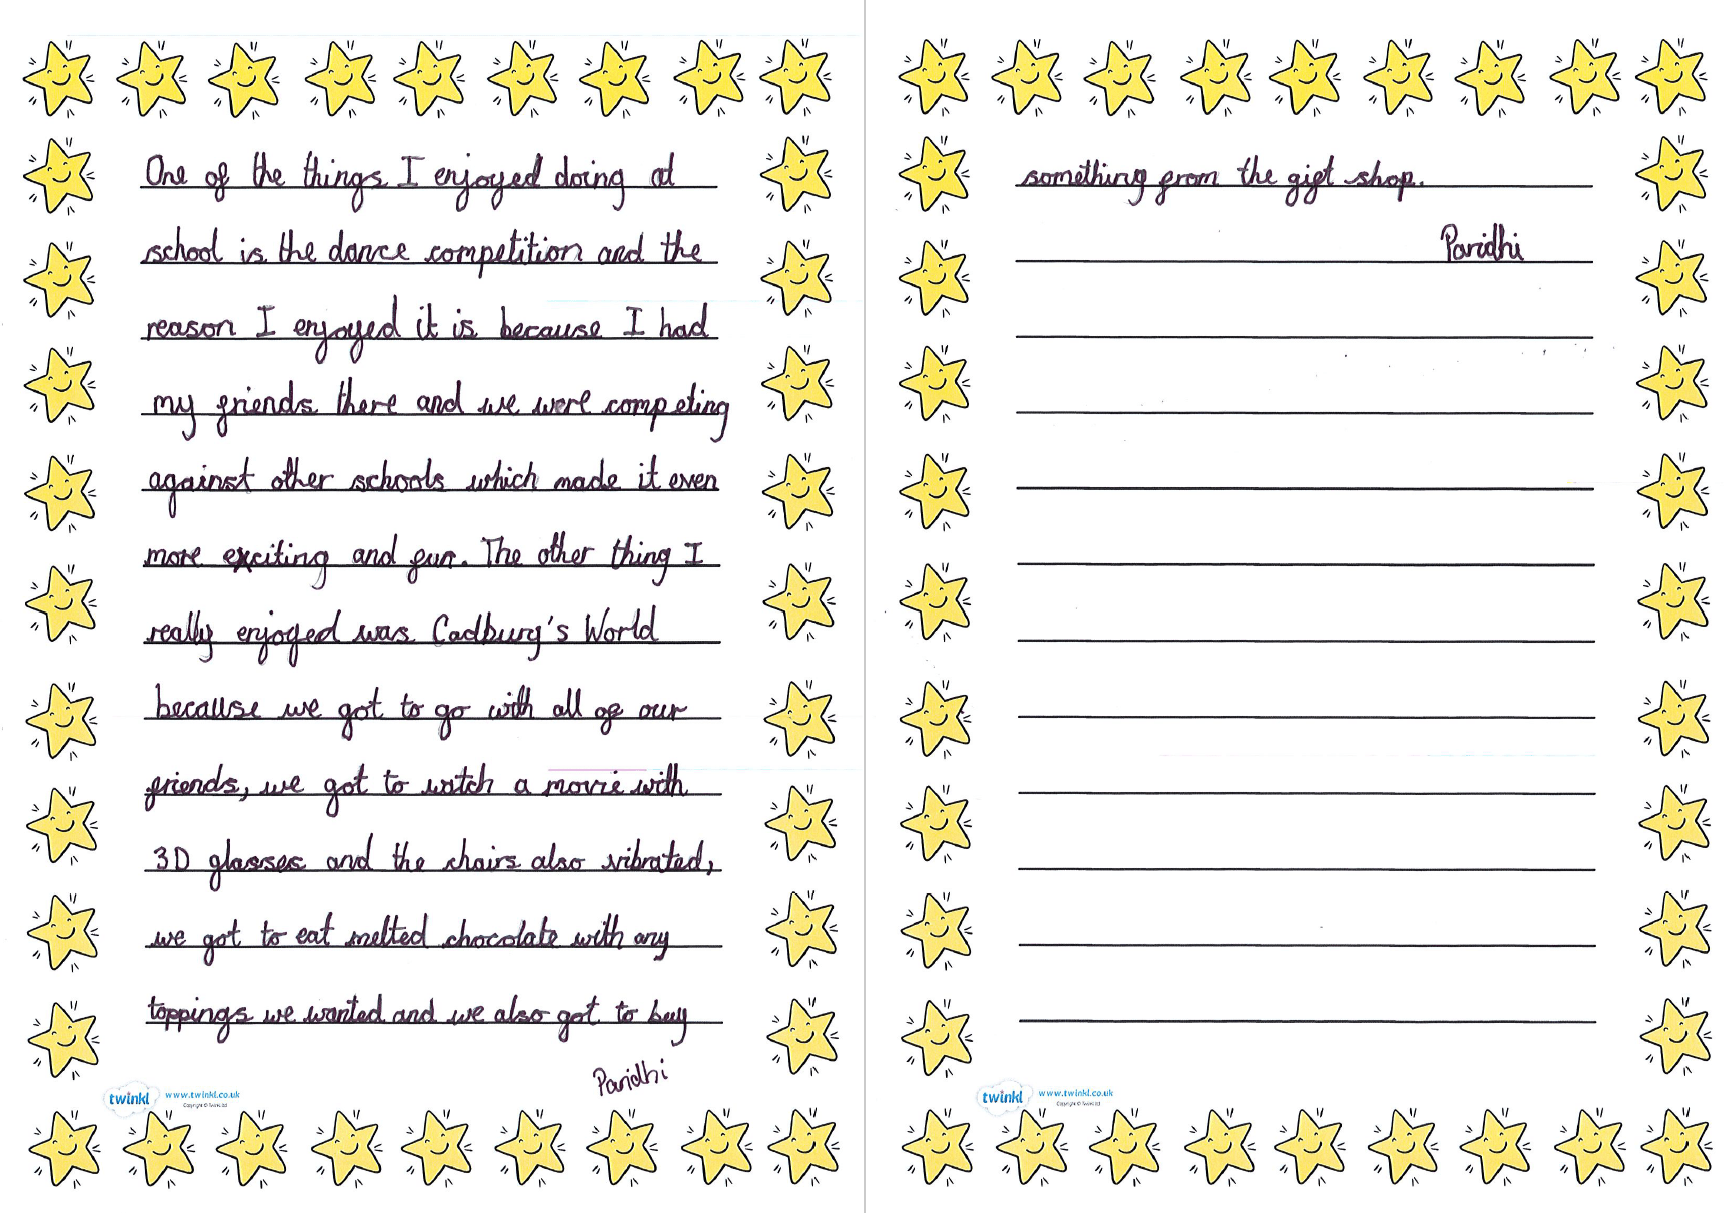 One of the things I enjoyed doing at
school is the dance competition and the
reason I enjoyed it is because I had
my friends there and we were competing
against other schools which made it even
more exciting and fun. The other thing I
really enjoyed was Cadbury's World
because we got to go with all of our
friends, we got to watch a movie with
3D glasses and the chairs also vibrated,
we got to eat melted chocolate with any
toppings we wanted and we also got to buy
Paridhi
twinkl www.twinkl.co.uk
something from the gift shop.
Paridhi
twinkl www.twinkl.co.uk